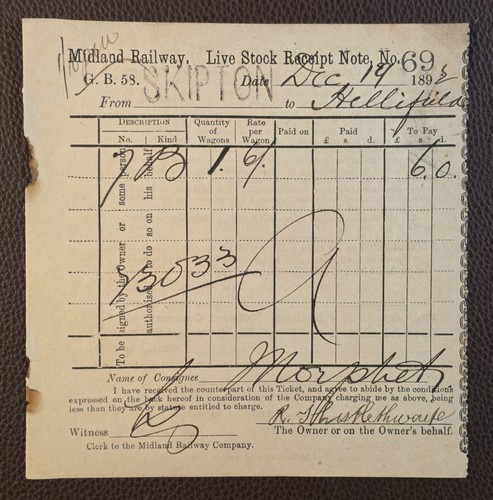 Midland Railway. Live Stock Receipt Note, No. 69
G. B. 58. SKIPTON Date Dec 19 1893
From to Hellifield
DESCRIPTION Quantity of Wagons Rate per Wagon Paid on Paid To Pay
No. Kind £ s. d. £ s. d.
7 B 1. 6/. 6. 0.
To be signed by the Owner or some person
authorised to do so on his behalf
13033
Name of Consignee Morphet
I have received the counterpart of this Ticket, and agree to abide by the conditions
expressed on the back hereof in consideration of the Company charging me as above, being
less than they are by statute entitled to charge.
R. Thistlethwaite
Witness The Owner or on the Owner's behalf.
Clerk to the Midland Railway Company.